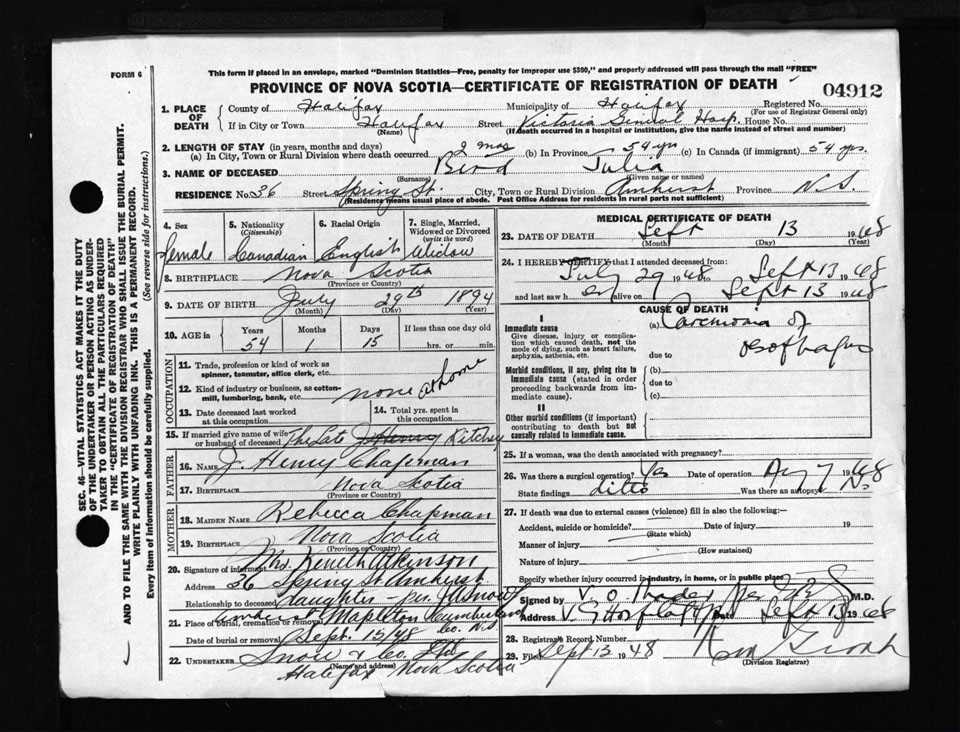 FORM 6
This form if placed in an envelope, marked "Dominion Statistics—Free, penalty for improper use $300," and property addressed will pass through the mail "FREE"
PROVINCE OF NOVA SCOTIA—CERTIFICATE OF REGISTRATION OF DEATH
04912
1. PLACE OF DEATH
County of Halifax Municipality of Halifax Registered No.
(For use of Registrar General only)
If in City or Town Halifax Street Victoria General Hosp. House No.
(Name) (If death occurred in a hospital or institution, give the name instead of street and number)
2. LENGTH OF STAY (in years, months and days)
(a) In City, Town or Rural Division where death occurred 2 mos (b) In Province 54 yrs (c) In Canada (if immigrant) 54 yrs.
3. NAME OF DECEASED Bird Julia
(Surname) (Given name or names)
RESIDENCE No. 36 Street Spring St. City, Town or Rural Division Amherst Province N.S.
(Residence means usual place of abode. Post Office Address for residents in rural parts not sufficient)
4. Sex female
5. Nationality (Citizenship) Canadian
6. Racial Origin English
7. Single, Married, Widowed or Divorced (write the word) Widow
8. BIRTHPLACE Nova Scotia
(Province or Country)
9. DATE OF BIRTH July 29th 1894
(Month) (Day) (Year)
10. AGE in Years Months Days If less than one day old
54 1 15 hrs. or min.
OCCUPATION
11. Trade, profession or kind of work as spinner, teamster, office clerk, etc.
12. Kind of industry or business, as cotton-mill, lumbering, bank, etc. none at home
13. Date deceased last worked at this occupation
14. Total yrs. spent in this occupation
15. If married give name of wife or husband of deceased The Late J Henry Ritchey
FATHER
16. NAME J. Henry Chapman
17. BIRTHPLACE Nova Scotia
(Province or Country)
MOTHER
18. MAIDEN NAME Rebecca Chapman
19. BIRTHPLACE Nova Scotia
(Province or Country)
20. Signature of informant Mrs. Kenneth Atkinson
Address 36 Spring St Amherst
Relationship to deceased daughter - per
21. Place of burial, cremation or removal Mapleton Cumberland Co. N.S.
Date of burial or removal Sept. 15/48
22. UNDERTAKER Snow & Co. Ltd
(Name and address)
Halifax Nova Scotia
MEDICAL CERTIFICATE OF DEATH
23. DATE OF DEATH Sept 13 1948
(Month) (Day) (Year)
24. I HEREBY CERTIFY that I attended deceased from
July 29 1948 to Sept 13 1948
and last saw her alive on Sept 13 1948
CAUSE OF DEATH
I
Immediate cause
Give disease, injury or complication which caused death, not the mode of dying, such as heart failure, asphyxia, asthenia, etc.
(a) Carcinoma of
due to
Morbid conditions, if any, giving rise to immediate cause (stated in order proceeding backwards from immediate cause).
(b)
due to
(c)
II
Other morbid conditions (if important) contributing to death but not causally related to immediate cause.
25. If a woman, was the death associated with pregnancy?
26. Was there a surgical operation? Yes Date of operation Aug 7 1948
State findings ditto Was there an autopsy? No
27. If death was due to external causes (violence) fill in also the following:—
Accident, suicide or homicide? Date of injury 19
(State which)
Manner of injury
(How sustained)
Nature of injury
Specify whether injury occurred in industry, in home, or in public place
Signed by V. O. M.D.
Address Date Sept 13 1948
28. Registrars Record Number
29. Filed Sept 13 1948
(Division Registrar)
SEC. 46—VITAL STATISTICS ACT MAKES IT THE DUTY
OF THE UNDERTAKER OR PERSON ACTING AS UNDER-
TAKER TO OBTAIN ALL THE PARTICULARS REQUIRED
IN THE "CERTIFICATE OF REGISTRATION OF DEATH"
AND TO FILE THE SAME WITH THE DIVISION REGISTRAR WHO SHALL ISSUE THE BURIAL PERMIT.
WRITE PLAINLY WITH UNFADING INK. THIS IS A PERMANENT RECORD.
Every item of information should be carefully supplied. (See reverse side for instructions.)